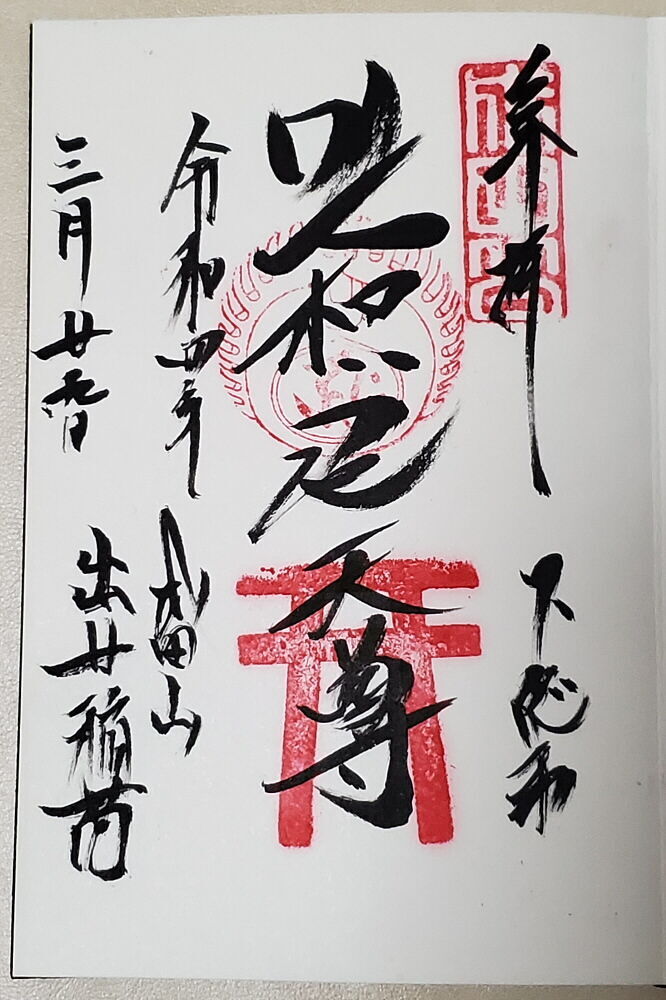 奉拝
吒枳尼天尊
令和四年
成田山
三月廿九日
出世稲荷